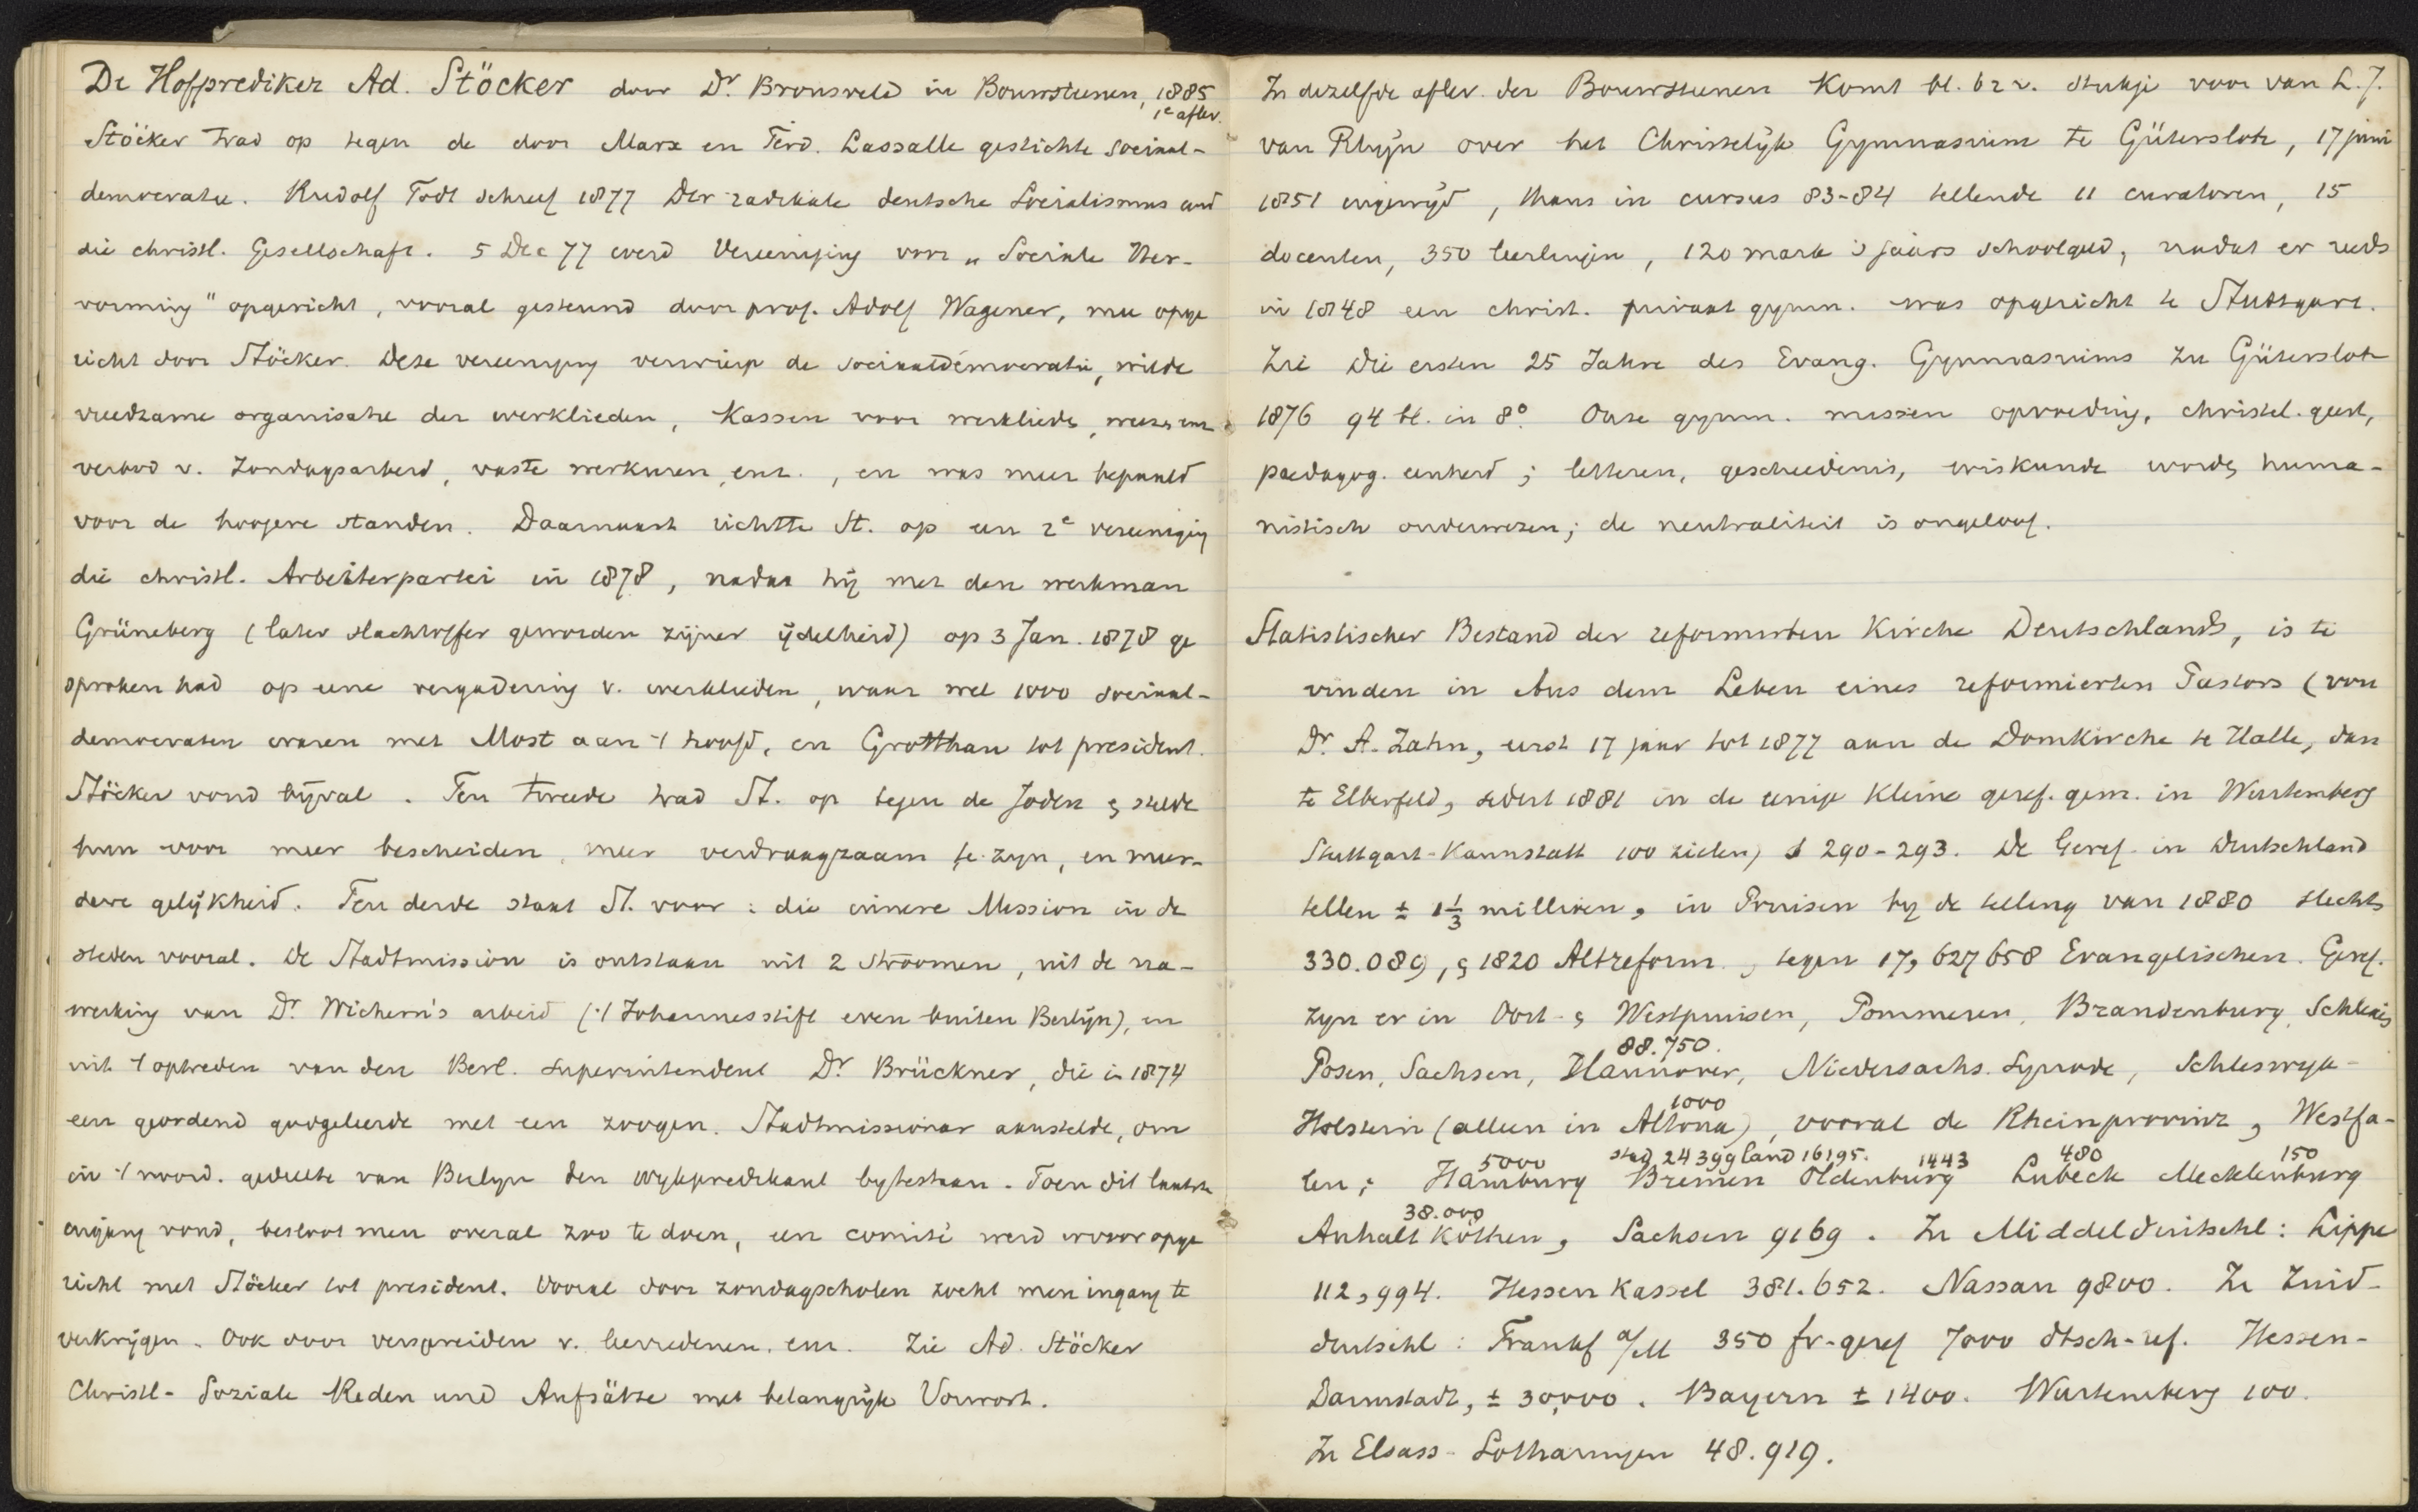 De Hofprediker Ad. Stöcker door Dr. Bronsveld in Bouwsteenen, 1885
1e aflev.
Stöcker trad op tegen de door Marx en Ferd. Lassalle gestichte sociaal-
democratie. Rudolf Todt schreef 1877 Der radikale deutsche Socialismus und
die christl. Gesellschaft. 5 Dec 77 werd Vereeniging voor „Sociale Her-
vorming" opgericht, vooral gesteund door prof. Adolf Wagener, mee opge
richt door Stöcker. Deze vereeniging verwierp de sociaaldemocratie, wilde
vreedzame organisatie der werklieden, Kassen voor werklieden, weezen enz
verbod v. Zondagsarbeid, vaste werkuren, enz., en was meer bepaald
voor de hoogere standen. Daarnaast richtte St. op een 2e vereeniging
die christl. Arbeiterpartei in 1878, nadat hij met den werkman
Grüneberg (later slachtoffer geworden zijner ijdelheid) op 3 Jan. 1878 ge
sproken had op eene vergadering v. werklieden, waar wel 1000 sociaal-
democraten waren met Most aan 't hoofd, en Grotthau tot president.
Stöcker vond bijval. Ten tweede trad St. op tegen de Joden & stelde
hun voor meer bescheiden, meer verdraagzaam te zyn, en meer-
dere gelijkheid. Ten derde staat St. voor: die innere Mission in de
steden vooral. De Stadtmission is ontstaan uit 2 stroomen, uit de na-
werking van Dr. Wichern's arbeid ('t Johannesstift even buiten Berlijn), en
uit 't optreden van den Berl. superintendent Dr Brückner, die in 1874
een geordend godgeleerde met een zoogen. Stadtmissionar aanstelde, om
in 't noord. gedeelte van Berlyn den wykpredikant bytestaan. Toen dit laatste
ingang vond, besloot men overal zoo te doen, een comité werd ervoor opge
richt met Stöcker tot president. Vooral door zondagscholen zocht men ingang te
verkrijgen. Ook door verspreiden v. leerredenen, enz. Zie Ad. Stöcker
Christl-Soziale Reden und Aufsätze met belangrijk Vorwort.
In dezelfde aflev. der Bouwsteenen Komt bl. 62 v. stukje voor van L. J.
van Rhijn over het Christelijk Gymnasium te Gütersloh, 17 juni
1851 ingewijd, thans in cursus 83-84 tellende 11 curatoren, 15
docenten, 350 leerlingen, 120 mark 's jaars schoolgeld, nadat er reeds
in 1848 een christ. privaat gymn. was opgericht te Stuttgart.
Zie Die ersten 25 Jahre des Evang. Gymnasiums zu Gütersloh
1876 94 bl. in 8°. Onze gymn. missen opvoeding, christel. geest,
paedagog. eenheid; letteren, geschiedenis, wiskunde worden huma-
nistisch onderwezen; de neutraliteit is ongeloof.
Statistischer Bestand der reformirten Kirche Deutschlands, is te
vinden in Aus dem Leben eines reformierten Pastors (von
Dr. A. Zahn, eerst 17 jaar tot 1877 aan de Domkirche te Halle, dan
te Elberfeld, sedert 1881 in de eenige Kleine geref. gem. in Wurtemberg
Stuttgart-Kannstatt 100 zielen) S 290-293. De Geref. in Deutschland
tellen ± 1 1/3 millioen, in Pruisen by de telling van 1880 slechts
330.089, & 1820 Altreform., tegen 17,627658 Evangelischen. Geref.
zyn er in Oost- & Westpruisen, Pommeren, Brandenburg, Schlesis
88.750.
Posen, Sachsen, Hannover, Niedersachs. Synode, Schleswyk-
1000
Holstein (alleen in Altona), vooral de Rheinprovinz, Westfa-
5000 stad 24399 land 16195. 1443 480 150
len; Hamburg Bremen Oldenburg Lubeck Mecklenburg
38.000
Anhalt Köthen, Sachsen 9169. In Middelduitschl: Lippe
112,994. Hessen Kassel 381.652. Nassau 9800. In Zuid-
duitschl: Frankf a/M 350 fr-geref 7000 dtsch-ref. Hessen-
Darmstadt, ± 30,000. Bayern ± 1400. Wurtemberg 100.
In Elsass-Lotharingen 48.919.